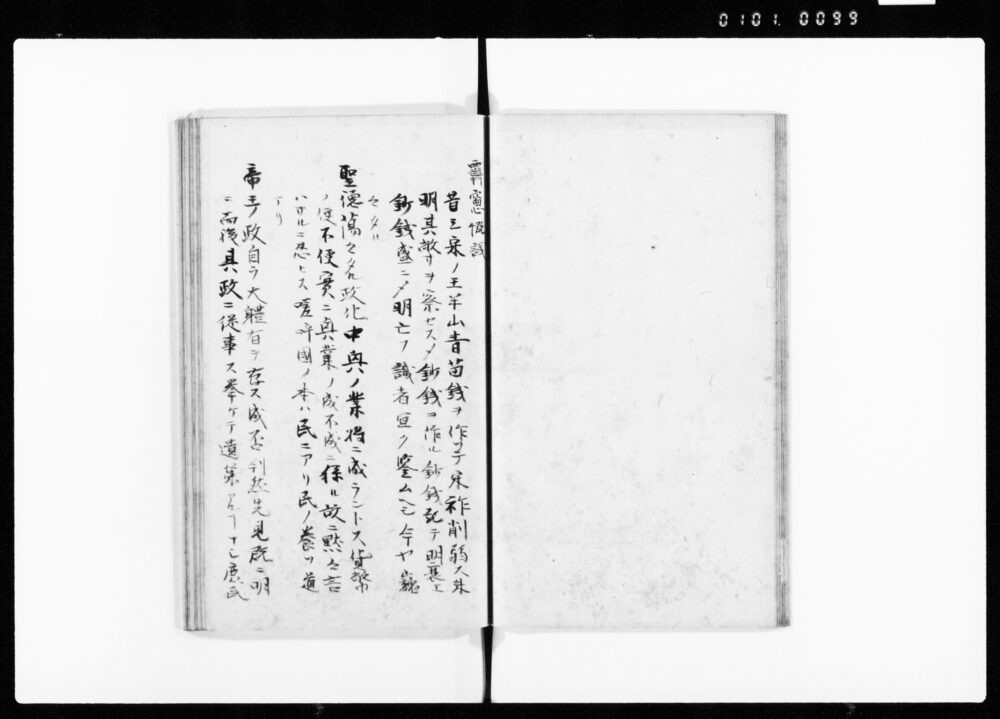 0101. 0099
昔三宋ノ王半山青苗銭ヲ作ツテ宋祚削弱ス朱
明其敝ヲ察セスメ鈔銭ヲ作ル鈔銭起テ明衰エ
鈔銭盛ニメ明亡フ識者宜ク鑒ムヘシ今ヤ巍
々タル
聖徳蕩々タル政化中興ノ業将ニ成ラントス貨幣
ノ便不便実ニ興業ノ成不成ニ係ル故ニ黙々言
ハサルニ忍ヒス嗟呼国ノ本ハ民ニアリ民ノ養フ道
アリ
帝王ノ政自ラ大體有ヲ存ス成否判然先見既ニ明
ニ而後其政ニ従事ス挙ケテ遺策アルコトナシ庶民